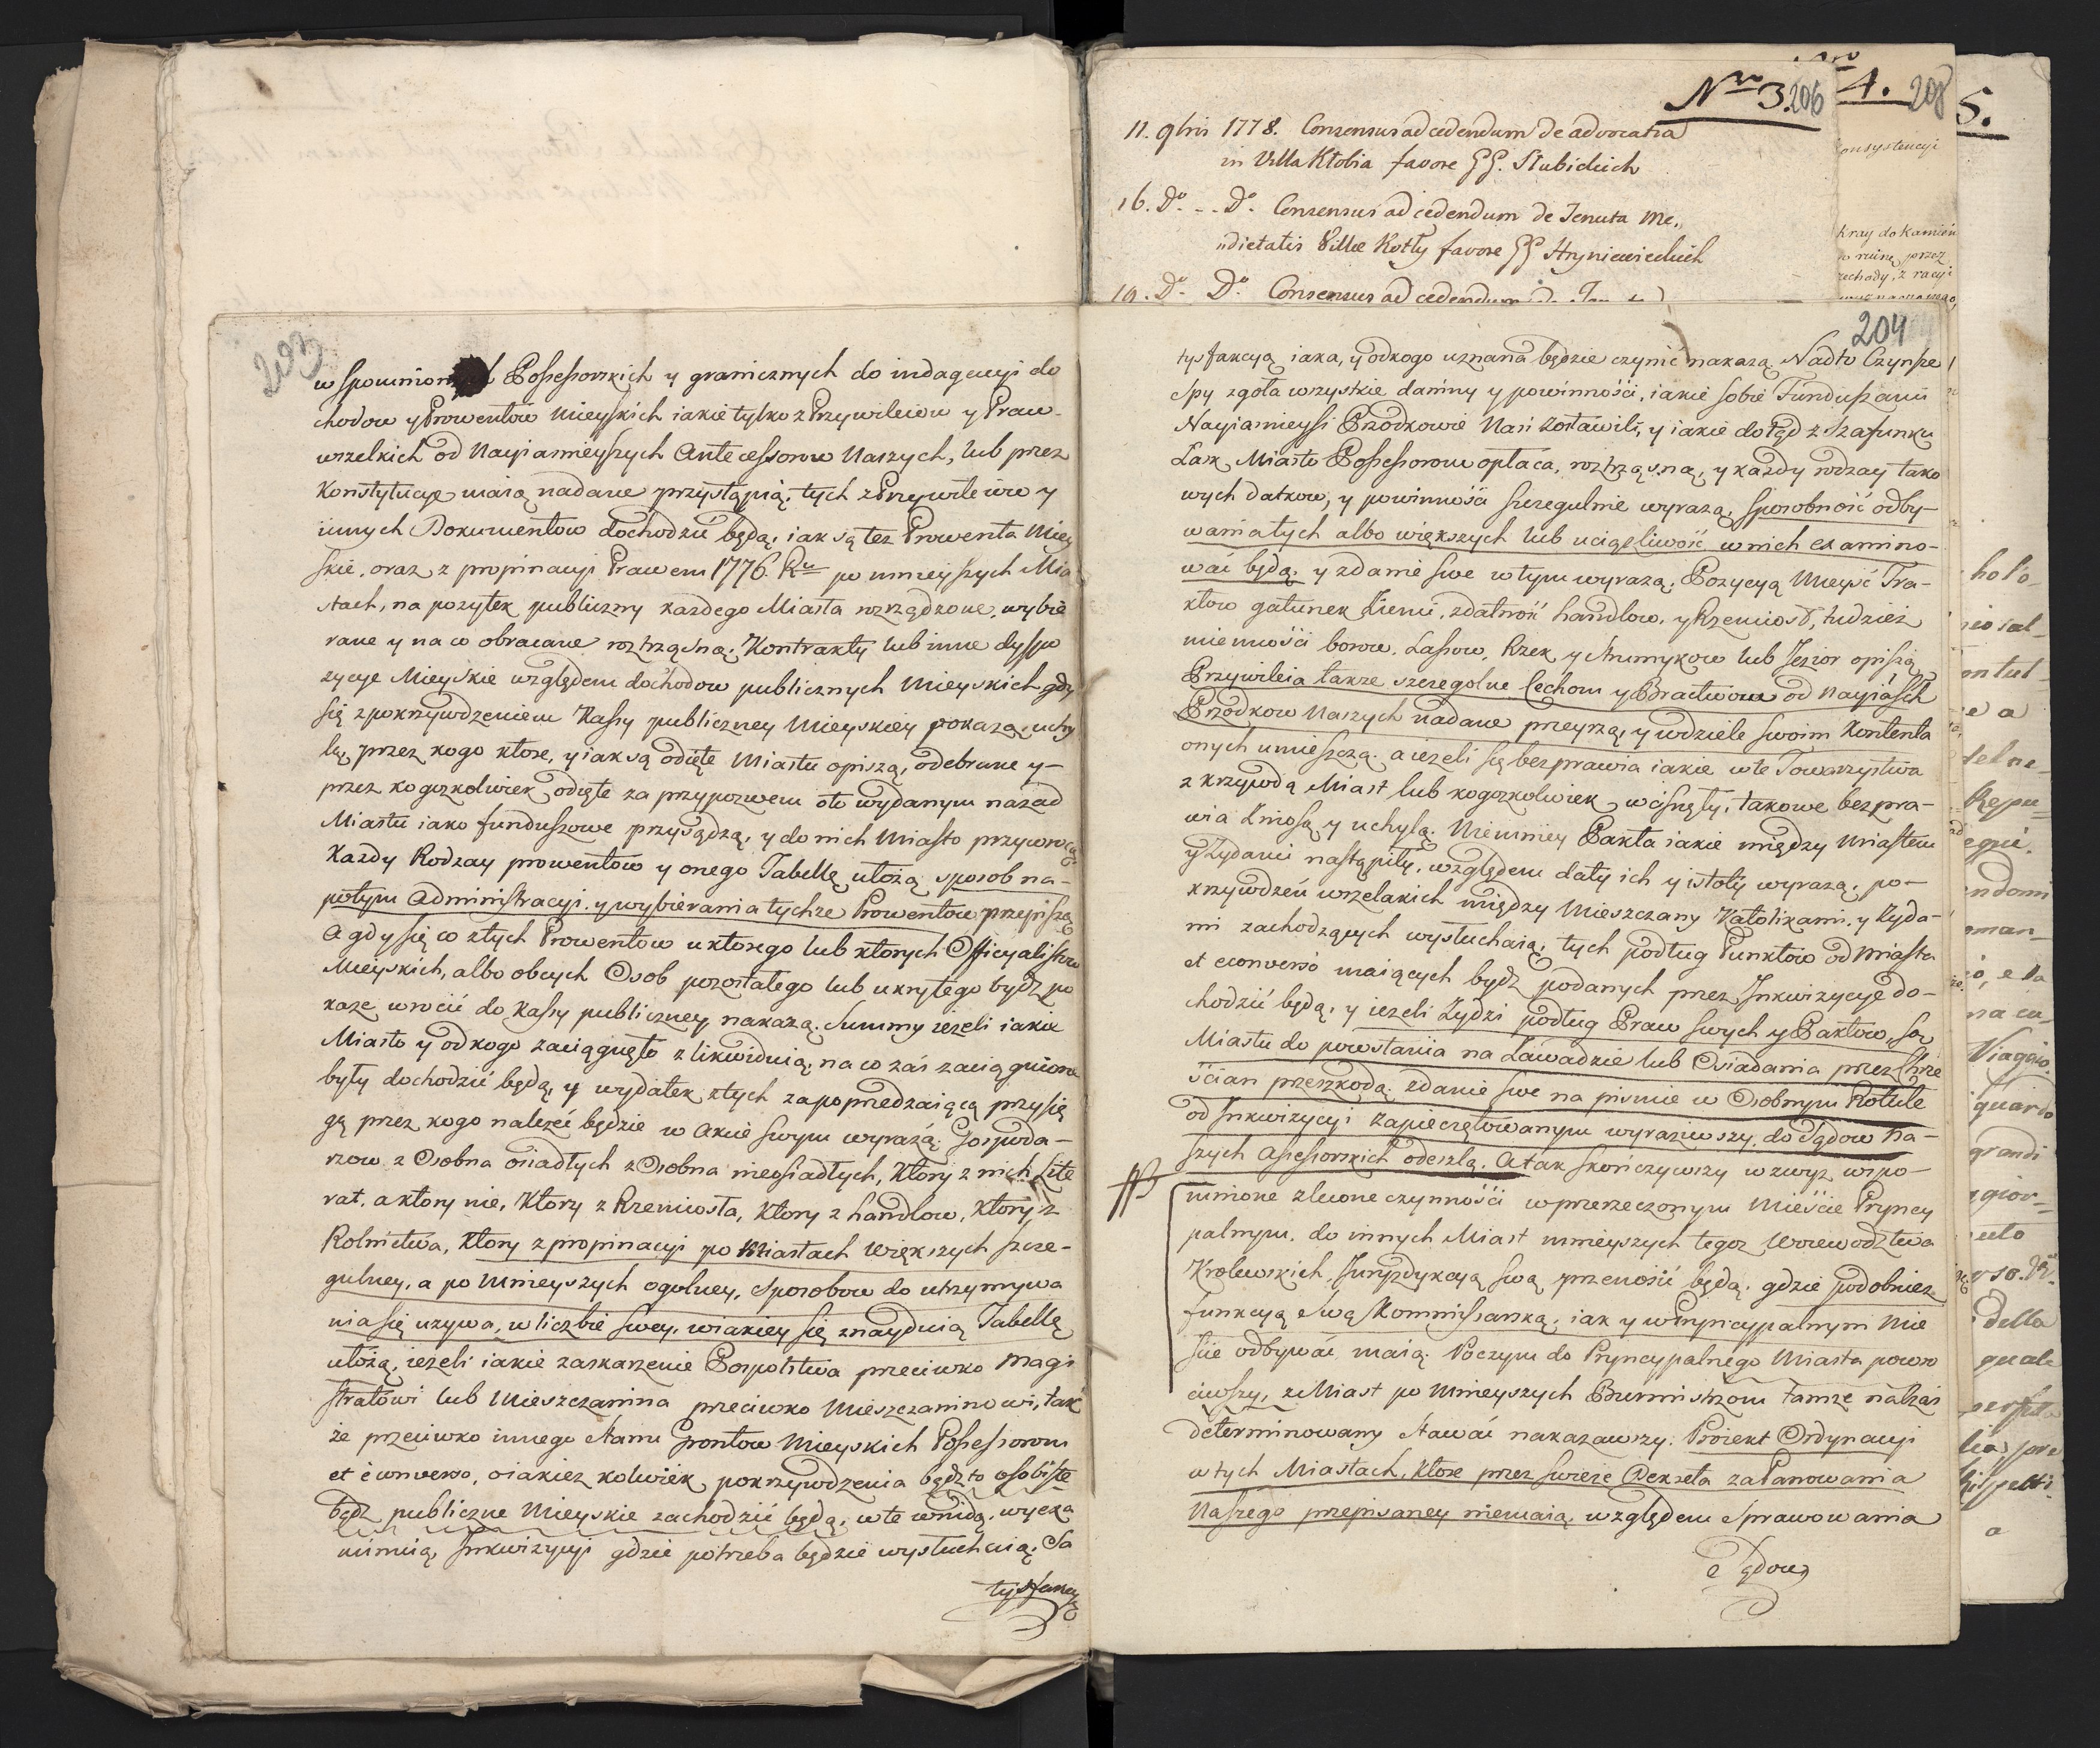 203
wspomnion Possessorskich y granicznych do indagacyi do
chodow y Prowentow Mieyskich iakie tylko z Przywileiow y Praw
wszelkich od Nayiasnieyszych Antecessorow Naszych, lub przez
Konstytucye maią nadane przystąpią; tych z Przywileiow y
innych Dokumentow dochodzić będą, iak są tez Prowenta Miey
skie, oraz z propinacyi Prawem 1776. Ru po mnieyszych Mia
stach, na pozytek publiczny kazdego Miasta rozrządzone, wybie
rane y na co obracane roztrząsną; Kontrakty lub inne dyspo
zycye Mieyskie względem dochodow publicznych Mieyskich gdy
się z pokrzywdzeniem Kassy publiczney Mieyskiey pokazą, uchy
lą, przez kogo ktore, y iak są odięte Miastu opiszą, odebrane y
przez kogozkolwiek odięte za przypozwem oto wydanym nazad
Miastu iako funduszowe przysądzą, y do nich Miasto przywrocą
Kazdy Rodzay prowentow y onego Tabellę ułożą sposob na
potym Administracyi y wybierania tychze Prowentow przepiszą
A gdy się co z tych Prowentow u ktorego lub ktorych Officyalistow
Mieyskich, albo obcych Osob pozostałego lub ukrytego bydź po
kaze wrocić do Kassy publiczney nakazą. Summy iezeli iakie
Miasto y od kogo zaciągnęło zlikwiduią, na co zaś zaciągnione
były dochodzić będą, y wydatek z tych za poprzedzaiącą przysię
gą przez kogo nalezeć będzie w Akcie swym wyrażą. Gospoda-
rzow z Osobna osiadłych z Osobna nieosiadłych, Ktory z nich Lite
rat, a ktory nie, Ktory z Rzemiosła, Ktory z handlow, Ktory z
Rolnictwa, Ktory z propinacyi po Miastach większych szcze-
gulney, a po Mnieyszych ogulney, Sposobow do utrzymywa
nia się uzywa, w liczbie swey, w iakiey się znayduią Tabellę
ułożą, iezeli iakie zaskarzenie Pospolstwa przeciwko Magi
stratowi lub Mieszczanina przeciwko Mieszczaninowi, tak
że przeciwko innego Stanu Grontow Mieyskich Possessorom
et e converso, o iakiez kolwiek pokrzywdzenia bądź to osobiste
bądź publiczne Mieyskie zachodzić będą, w te wnidą, wyexa
minuią, Inkwizycyi gdzie potrzeba będzie wysłuchaią. Sa
tysfakcyą
Nro 3. 206
4. 208
5.
11. 9bris 1778. Consensus ad cedendum de advocatia
in Villa Kłobia favore GG. Słubickich
16. Do. -- Do. Consensus ad cedendum de Tenuta Me,,
,,dietatis Villæ Kotły favore GG Hryniewieckich
Do. Do. Consensus ad cedendum de
onsystencyi
kray do Kamień
ruinę przez
z racyi
204
tysfakcyą iaka, y od kogo uznana będzie czynić nakazą. Nadto Czynsze
Spy zgoła wszystkie daniny y powinności, iakie sobie Funduszami
Nayiasnieysi Przodkowie Nasi zostawili, y iakie dotąd z Szafunku
Łask Miasto Possessorow opłaca, roztrząsną, y kazdy rodzay tako
wych datkow, y powinności szczegulnie wyrazą, sposobność odby-
wania tych albo większych lub uciążliwość w nich examino-
wać będą, y zdanie swe w tym wyrazą; Pozycyą Mieysc Tra-
ktow gatunek Ziemi, zdatność handlow, y Rzemiosł, tudziez
mienności borow, Lassow, Rzek y Strumykow lub Jezior opiszą,
Przywileia takze szczegolne Cechom y Bractwom od Nayiaśsch
Przodkow Naszych nadane przeyrzą, y w dziele swoim Kontenta
onych umieszczą, a iezeli się bezprawia iakie w te Towarzystwa
z krzywdą Miast lub kogozkolwiek wcisnęły, takowe bezpra-
wia zniosą y uchylą. Niemniey Pakta iakie między Miastem
y Zydami nastąpiły, względem daty ich y istoty wyrazą, po-
krzywdzeń wszelakich między Mieszczany Katolikami y Zyda-
mi zachodzących wysłuchaią, tych podług Punktow od Miasta
et econverso maiących bydz podanych przez Inkwizycye do-
chodzić będą, y iezeli Zydzi podług Praw swych y Paktow, są
Miastu do powstania na Zawadzie lub Osiadania przez Chrze
ścian przeszkodą, zdanie swe na pismie w Osobnym Rotule
od Inkwizycyi zapieczętowanym wyraziwszy, do Sądow Na-
szych Assessorskich odeszlą. A tak skończywszy wzwyz wspo-
mnione zlecone czynności w przerzeczonym Mieście Pryncy
palnym, do innych Miast mnieyszych tegoz Woiewodztwa
Krolewskich, Juryzdykcyą swą przenosić będą, gdzie podobniez
funkcyą swą Kommissarską, iak y w Pryncypalnym Mie
ście odbywać maią. Poczym do Pryncypalnego Miasta powro
ciwszy, z Miast po Mnieyszych Burmistrzom tamze na czas
determinowany stawać nakazawszy. Proiekt Ordynacyi
w tych Miastach, Ktore przez swieże Dekreta za Panowania
Naszego przepisaney niemaią, względem Sprawowania
Sądow